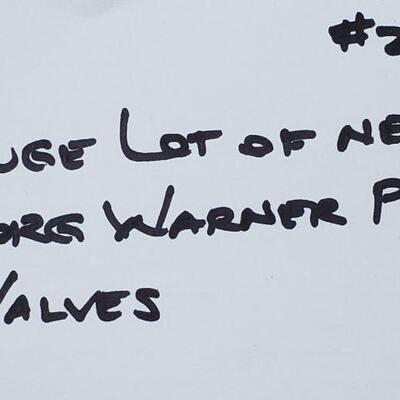 #2
UGE LOT OF NE
ORG WARNER P
VALVES